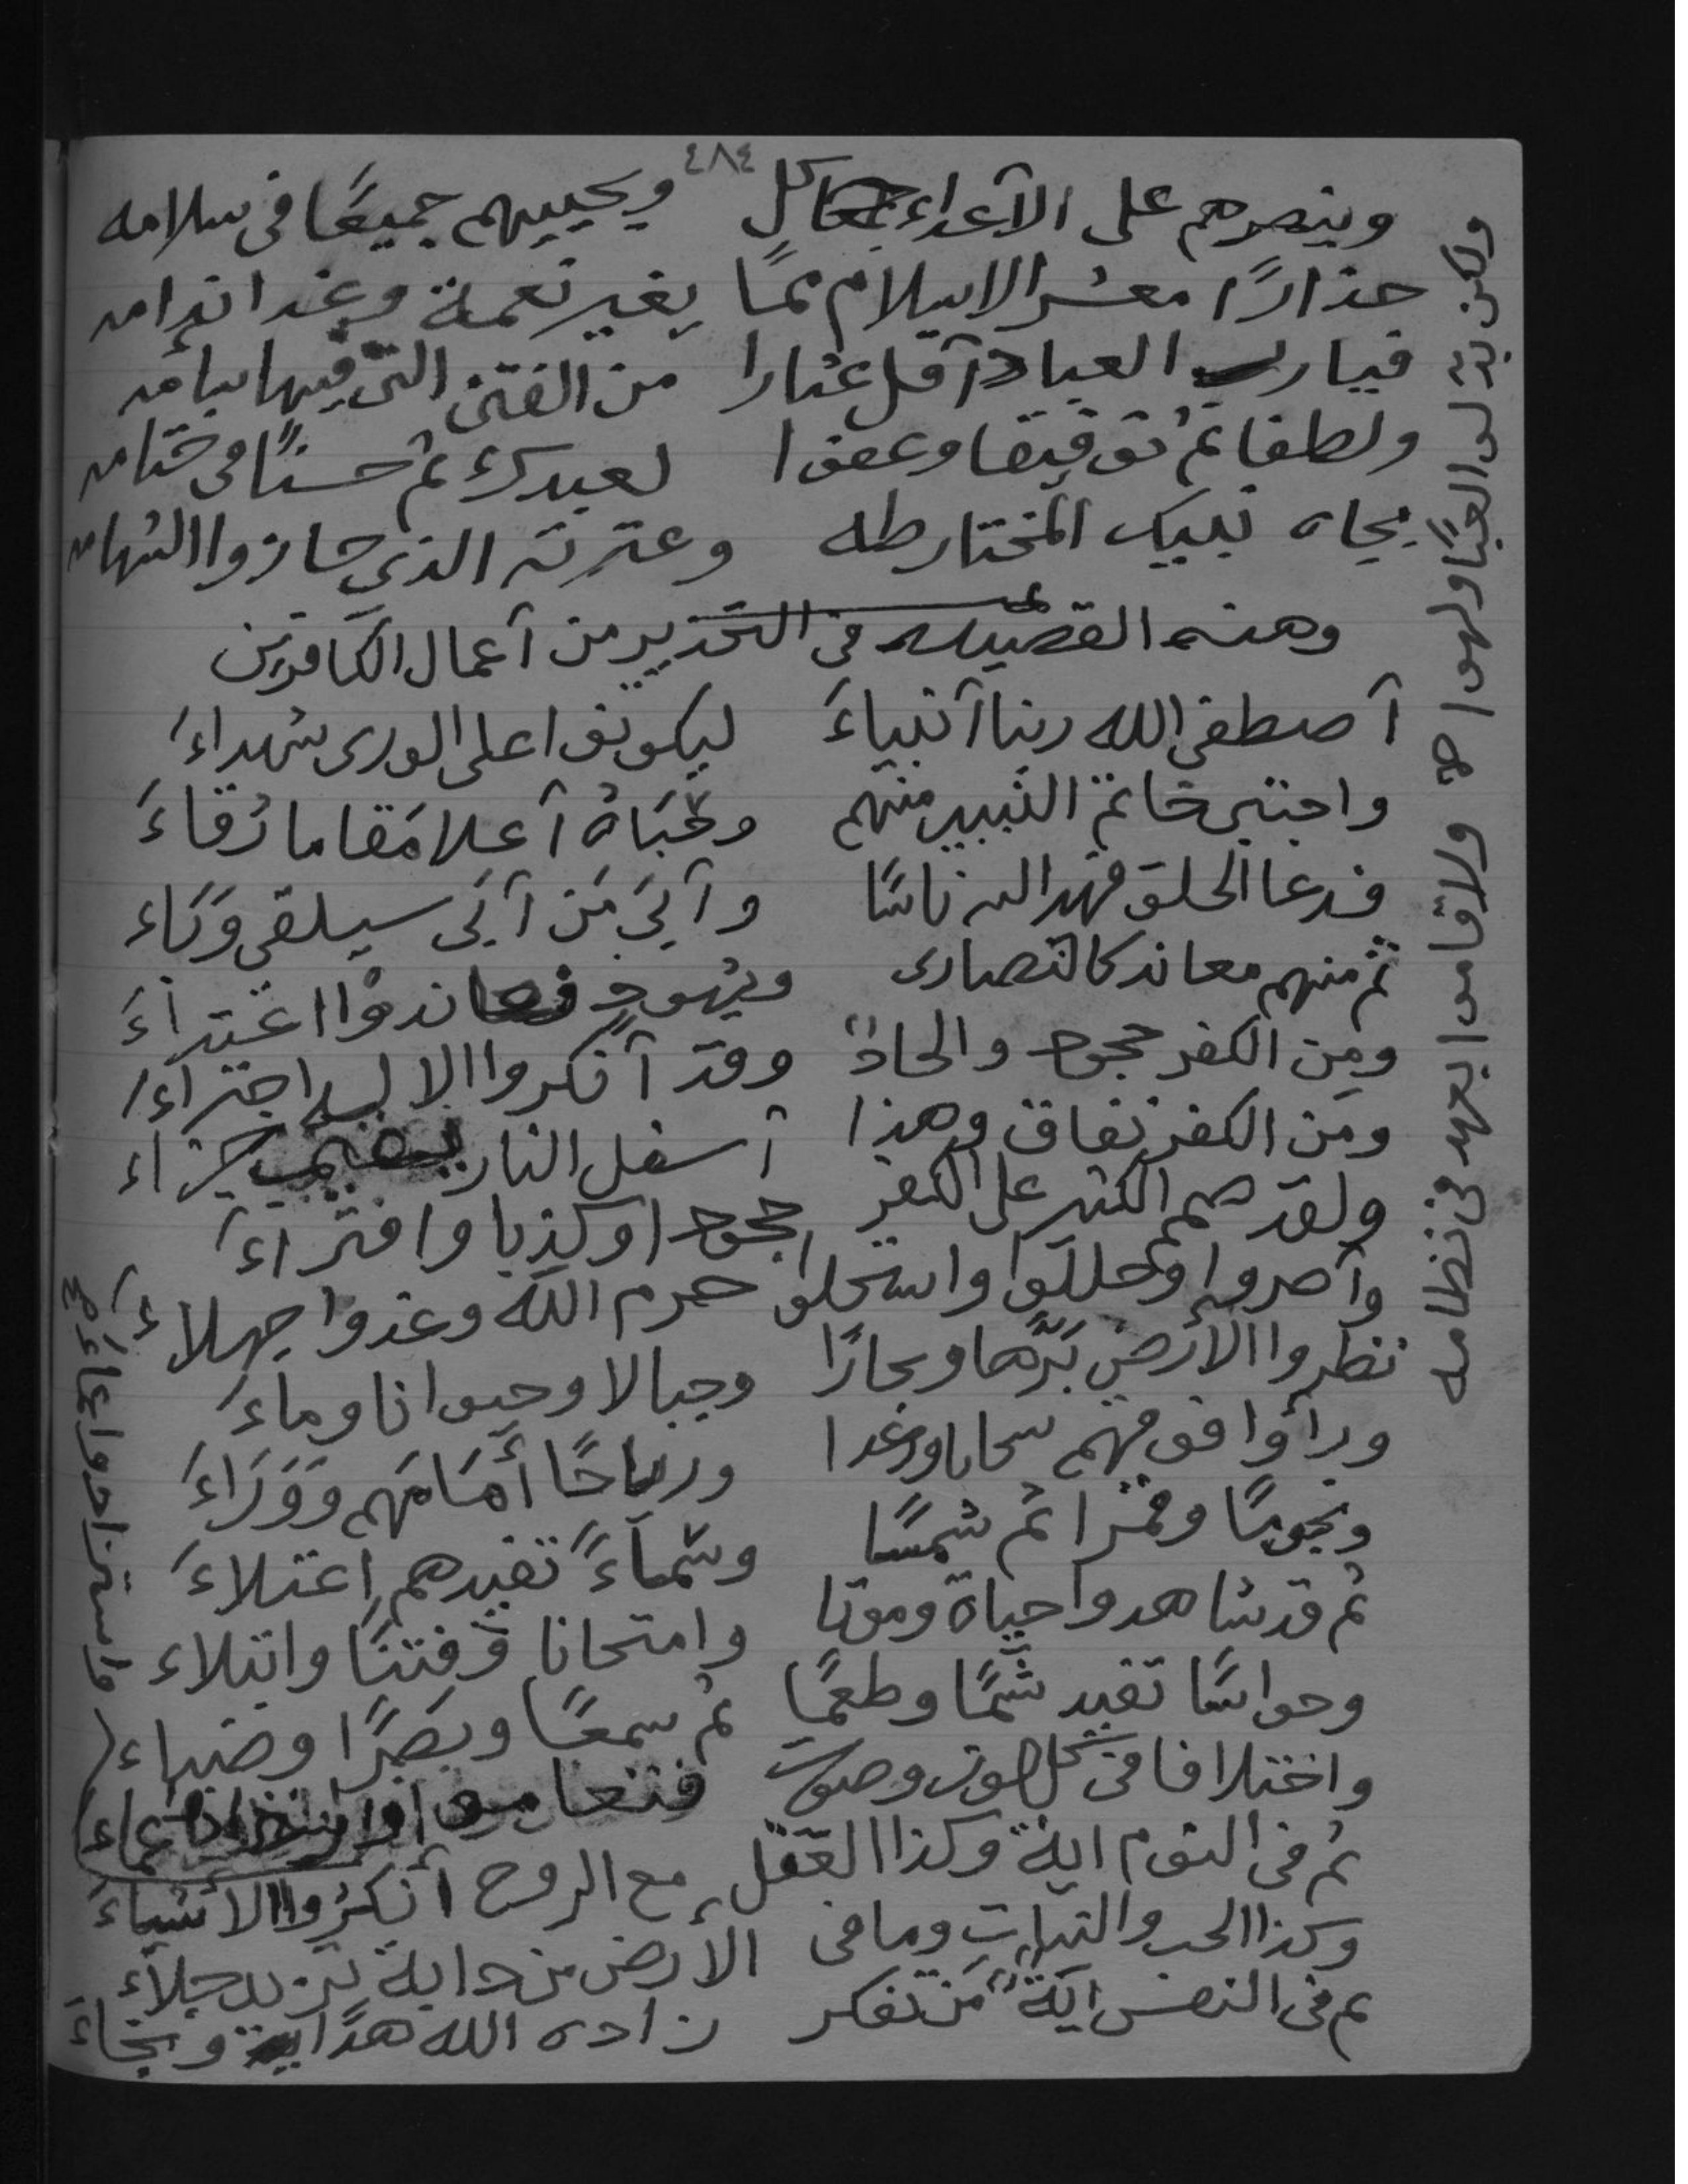 ٤٨٤
وينصرهم على الآعداء كل ويحييهم جميعًا فى سلامه
حذارًا معشر الاسلام ممّا يغير نعمة وغدا ندامه
فيارب العباد آقل عثارا من الفتن التى فيها سآمه
ولطفا ثم توفيقا وعفوا لعبدك ثم حسنًا فى ختامه
بجاه نبيك المختار طه وعترته الذى حازوا الشهامه
وهذه القصيده فى التحذير من آعمال الكافرين
آصطفى الله ربنا آنبياءَ ليكونوا على الورى شهداءَ
واجتبى خاتم النبيين منهم وحَبَاهُ آعلا مَقاما رُقاءَ
فدعا الخلق فهدا الله ناسًا وآبَى مَن آبَى سيلقى وَبَاء
ثم منهم معاند كالنصارى ويهودٍ فعاندوُا اعتداءَ
ومِن الكفر جحود والحادٌ وقد آنكروا الالـه اجتراءَ
ومن الكفر نفاق وهذا آسفل النار جزاء
ولقد صمم الكثير على الكفر جحودا وكذبا وافتراءَ
وآصروا وحللوا واستحلوا حرم الله وغدوا جهلاءَ
نظروا الأرض بَرّها وبحارًا وجبالا وحيوانا وماءَ
ورآؤا فوقهم سحابا ورعدا ورياحًا أمَامَهم وَوَرَاءَ
ونجومًا وقمرا ثم شمسًا وسَماءً تفيدهم اعتلاءَ
ثم قد شاهدوا حياة وموتا وامتحانا وفِتنًا وابتلاء
وحواسًا تفيد شَمًّا وطعمًا ثم سمعًا وبَصَرًا وضياء
واختلافا فى شكل لون وصوت فتعاموا واستزادوا عماءَ
ثم فى النوم اية وكذا العقل مع الروح أنكرُوا الأشياءَ
وكذا الحب والنبات وما فى الأرض من دابة تزيد جلاء
ثم فى النفس ايَة مَن تفكر زاده الله هدايه ونجاءَ
ولاقاموا بعهد فى نظامه
واستزادوا عماءَ صح